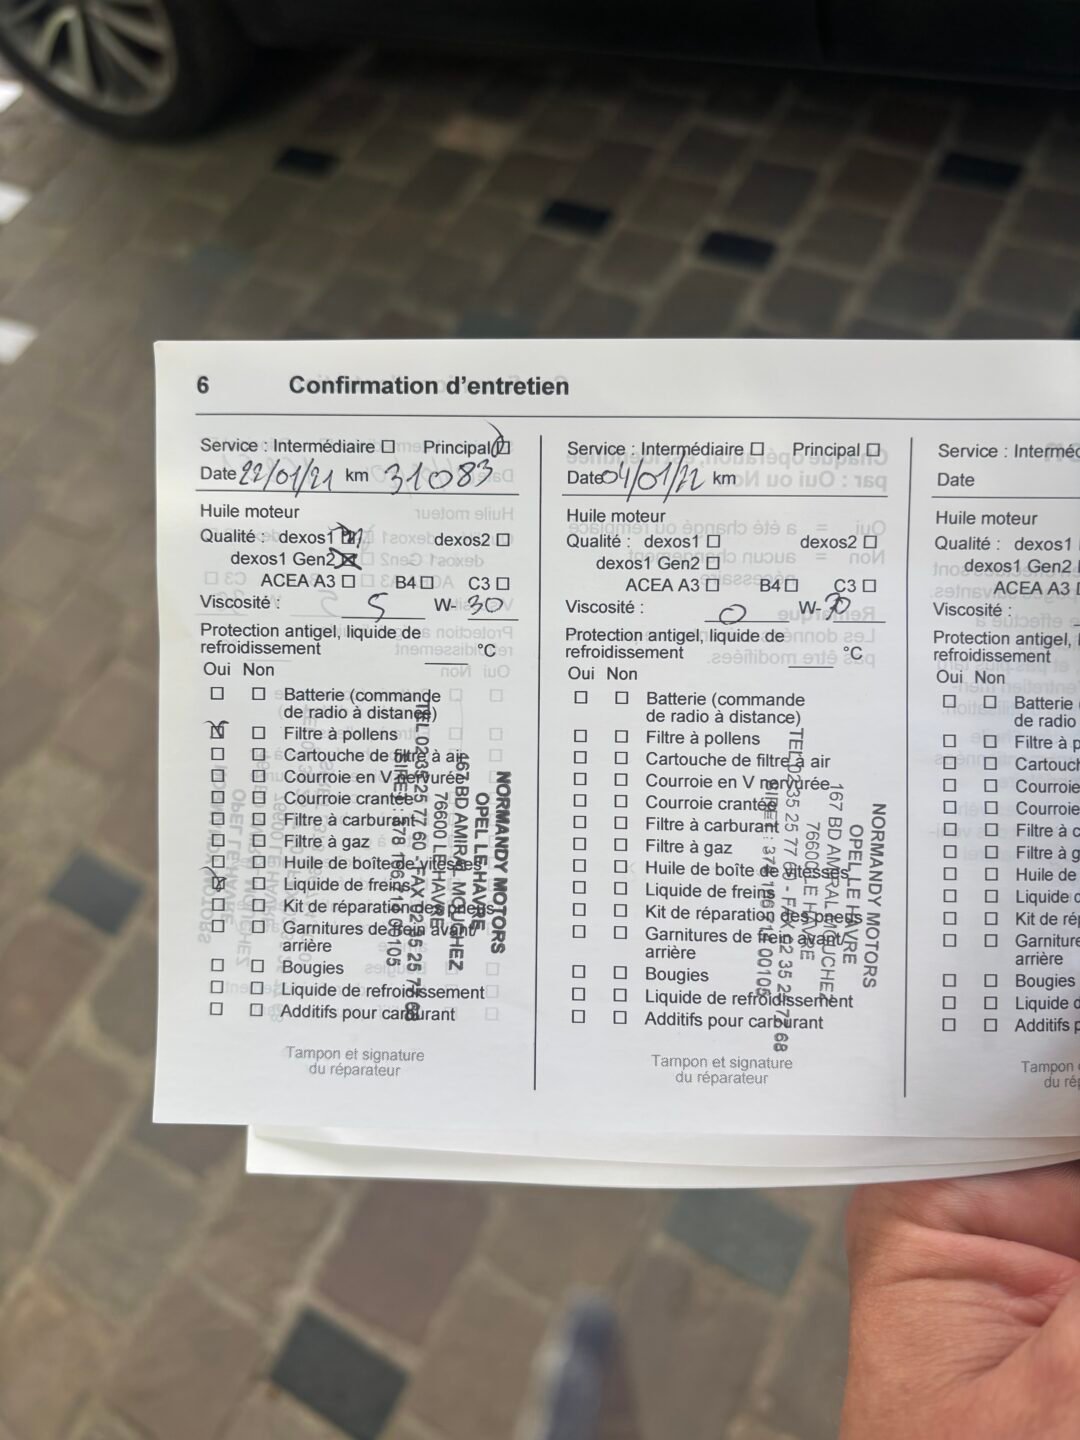 6 Confirmation d'entretien
Service : Intermédiaire ☐ Principal ☒
Date 22/01/21 km 31083
Huile moteur
Qualité : dexos1 dexos2 ☐
dexos1 Gen2 ☒
ACEA A3 ☐ B4 ☐ C3 ☐
Viscosité : 5 W- 30
Protection antigel, liquide de
refroidissement °C
Oui Non
☐ ☐ Batterie (commande
de radio à distance)
☒ ☐ Filtre à pollens
☐ ☐ Cartouche de filtre à air
☐ ☐ Courroie en V nervurée
☐ ☐ Courroie crantée
☐ ☐ Filtre à carburant
☐ ☐ Filtre à gaz
☐ ☐ Huile de boîte de vitesses
☒ ☐ Liquide de freins
☐ ☐ Kit de réparation des pneus
☐ ☐ Garnitures de frein avant/
arrière
☐ ☐ Bougies
☐ ☐ Liquide de refroidissement
☐ ☐ Additifs pour carburant
NORMANDY MOTORS
OPEL LE HAVRE
167 BD AMIRAL MOUCHEZ
76600 LE HAVRE
Tampon et signature
du réparateur
Service : Intermédiaire ☐ Principal ☐
Date 04/01/22 km
Huile moteur
Qualité : dexos1 ☐ dexos2 ☐
dexos1 Gen2 ☐
ACEA A3 ☐ B4 ☐ C3 ☐
Viscosité : 0 W-
Protection antigel, liquide de
refroidissement °C
Oui Non
☐ ☐ Batterie (commande
de radio à distance)
☐ ☐ Filtre à pollens
☐ ☐ Cartouche de filtre à air
☐ ☐ Courroie en V nervurée
☐ ☐ Courroie crantée
☐ ☐ Filtre à carburant
☐ ☐ Filtre à gaz
☐ ☐ Huile de boîte de vitesses
☐ ☐ Liquide de freins
☐ ☐ Kit de réparation des pneus
☐ ☐ Garnitures de frein avant/
arrière
☐ ☐ Bougies
☐ ☐ Liquide de refroidissement
☐ ☐ Additifs pour carburant
NORMANDY MOTORS
OPEL LE HAVRE
167 BD AMIRAL MOUCHEZ
76600 LE HAVRE
Tampon et signature
du réparateur
Service : Interméd
Date
Huile moteur
Qualité : dexos1
dexos1 Gen2
ACEA A3
Viscosité :
Protection antigel, l
refroidissement
Oui Non
☐ ☐ Batterie
de radio
☐ ☐ Filtre à p
☐ ☐ Cartouch
☐ ☐ Courroie
☐ ☐ Courroie
☐ ☐ Filtre à c
☐ ☐ Filtre à g
☐ ☐ Huile de
☐ ☐ Liquide
☐ ☐ Kit de ré
☐ ☐ Garniture
arrière
☐ ☐ Bougies
☐ ☐ Liquide d
☐ ☐ Additifs p
Tampon
du ré